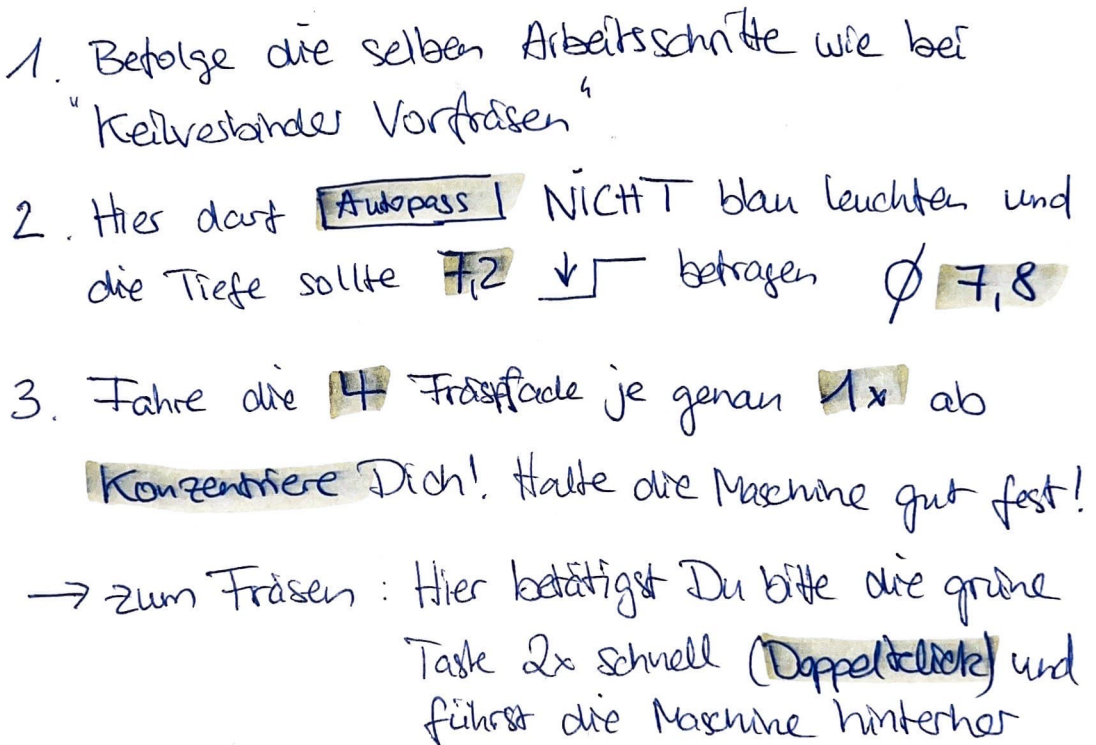 1. Befolge die selben Arbeitsschritte wie bei
"Keilverbinder Vorfräsen"
2. Hier darf Autopass NICHT blau leuchten und
die Tiefe sollte 7,2 betragen Ø 7,8
3. Fahre die 4 Fräspfade je genau 1x ab
Konzentriere Dich! Halte die Maschine gut fest!
→ zum Fräsen: Hier betätigst Du bitte die grüne
Taste 2x schnell (Doppelklick) und
führst die Maschine hinterher